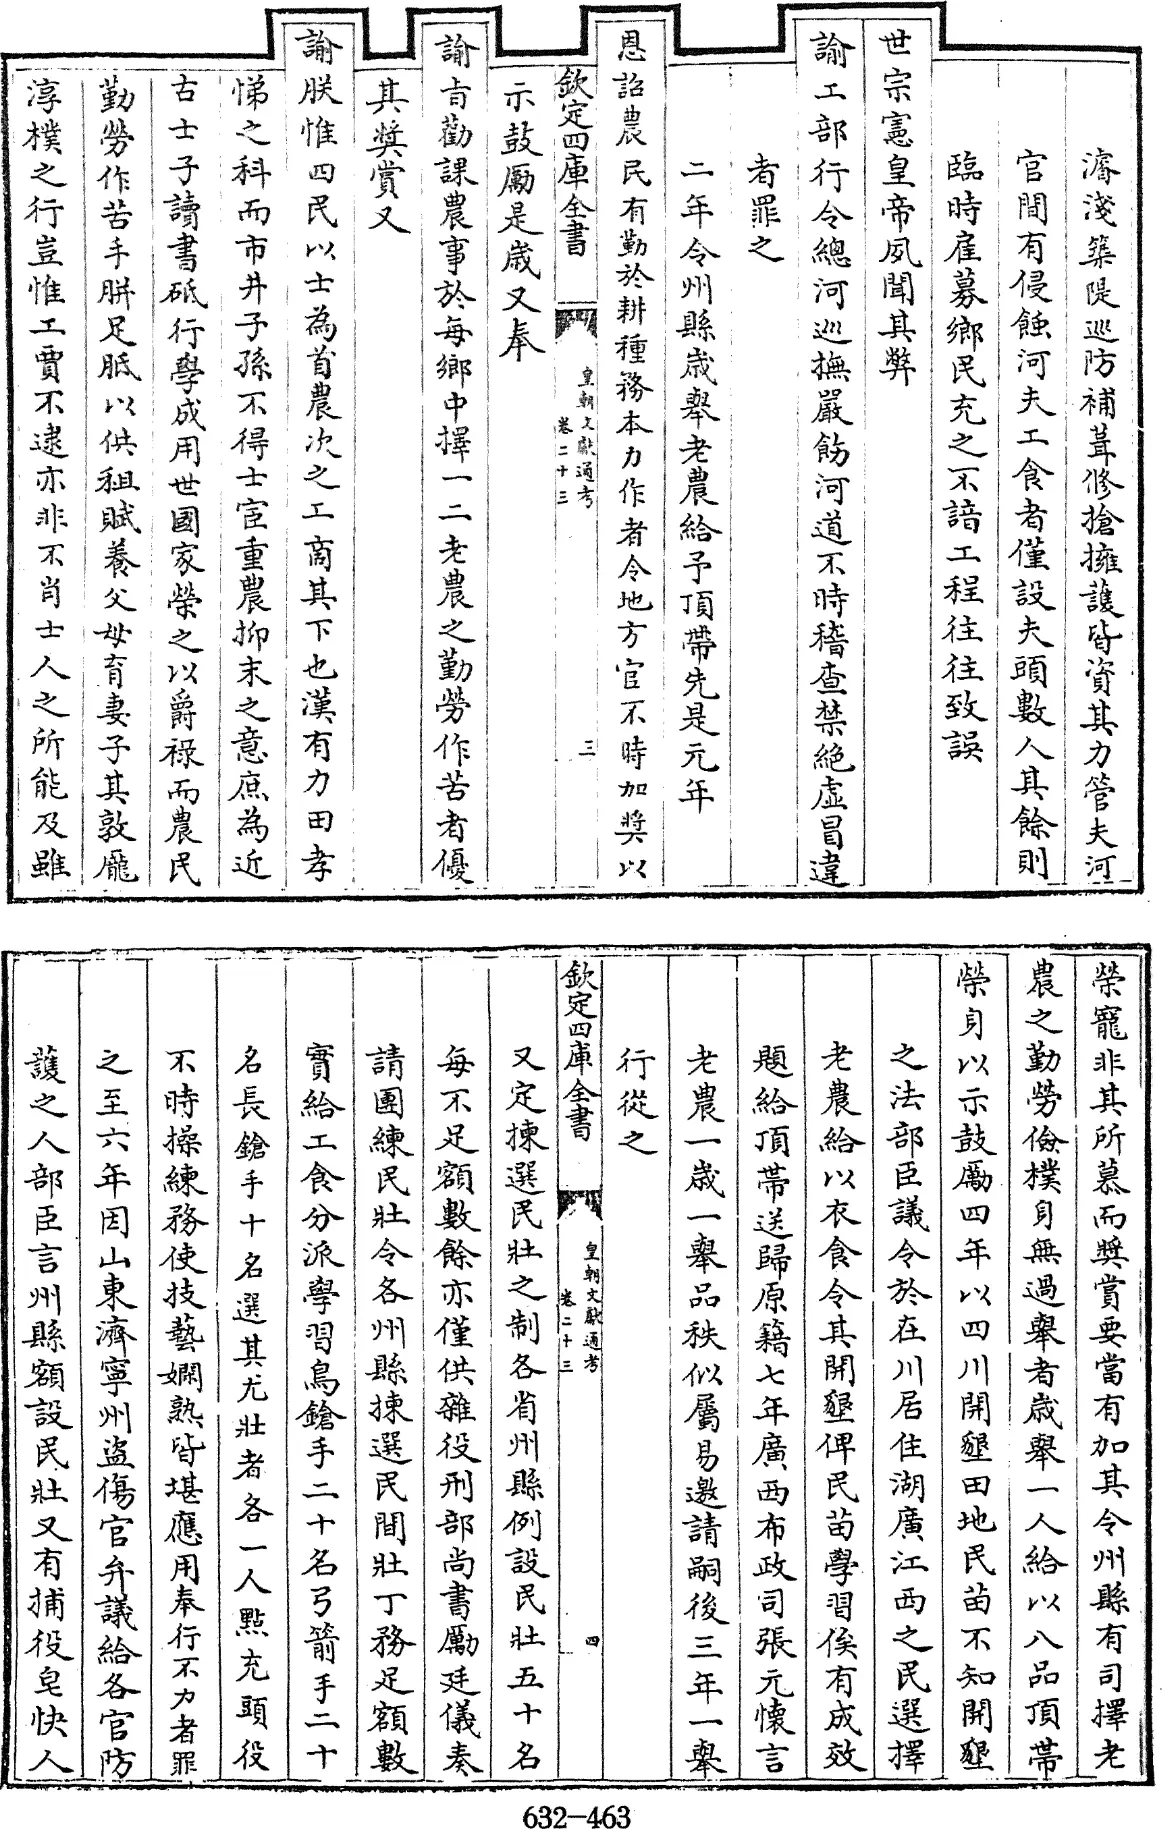 濬淺築隄巡防補葺修搶擁護皆資其力管夫河
官間有侵蝕河夫工食者僅設夫頭數人其餘則
臨時雇募鄉民充之不諳工程往往致誤
世宗憲皇帝夙聞其弊
諭工部行令總河巡撫嚴飭河道不時稽查禁絕虛冒違
者罪之
二年令州縣歲舉老農給予頂帶先是元年
恩詔農民有勤於耕種務本力作者令地方官不時加奬以
欽定四庫全書
皇朝文獻通考
卷二十三
三
示鼓厲是歲又奉
諭旨勸課農事於每鄉中擇一二老農之勤勞作苦者優
其奬賞又
諭朕惟四民以士為首農次之工商其下也漢有力田孝
悌之科而市井子孫不得士宦重農抑末之意庶為近
古士子讀書砥行學成用世國家榮之以爵祿而農民
勤勞作苦手胼足胝以供租賦養父母育妻子其敦龐
淳樸之行豈惟工賈不逮亦非不肖士人之所能及雖
榮寵非其所慕而奬賞要當有加其令州縣有司擇老
農之勤勞儉樸身無過舉者歲舉一人給以八品頂帶
榮身以示鼓勵四年以四川開墾田地民苗不知開墾
之法部臣議令於在川居住湖廣江西之民選擇
老農給以衣食令其開墾俾民苗學習俟有成效
題給頂帶送歸原籍七年廣西布政司張元懷言
老農一歲一舉品秩似屬易邀請嗣後三年一舉
行從之
欽定四庫全書
皇朝文獻通考
卷二十三
四
又定揀選民壯之制各省州縣例設民壯五十名
每不足額數餘亦僅供雜役刑部尚書勵廷儀奏
請團練民壯令各州縣揀選民間壯丁務足額數
實給工食分派學習鳥鎗手二十名弓箭手二十
名長鎗手十名選其尤壯者各一人點充頭役
不時操練務使技藝嫻熟皆堪應用奉行不力者罪
之至六年因山東濟寧州盜傷官弁議給各官防
護之人部臣言州縣額設民壯又有捕役皂快人
632-463